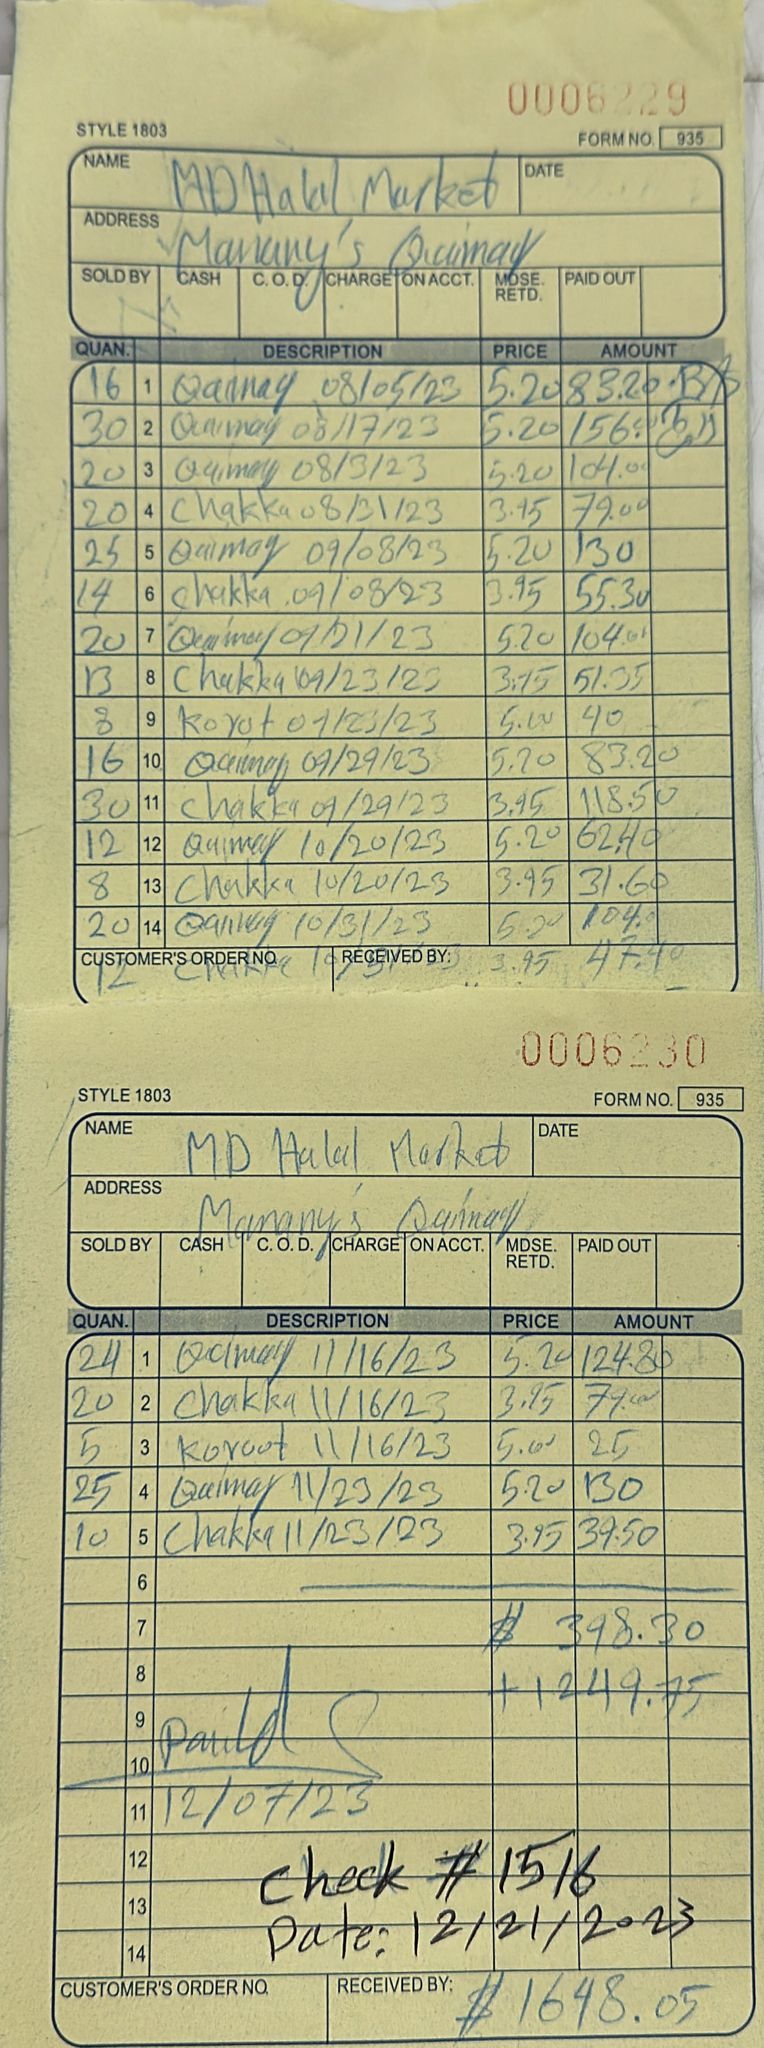 0006229
STYLE 1803 FORM NO. 935
NAME MD Halal Market DATE
ADDRESS Manany's Qaimay
SOLD BY CASH C. O. D. CHARGE ON ACCT. MDSE. RETD. PAID OUT
QUAN. DESCRIPTION PRICE AMOUNT
16 1 Qaimay 08/05/23 5.20 83.20
30 2 Qaimay 08/17/23 5.20 156.
20 3 Qaimay 08/3/23 5.20 104.00
20 4 Chakka 08/31/23 3.95 79.00
25 5 Qaimay 09/08/23 5.20 130
14 6 Chakka 09/08/23 3.95 55.30
20 7 Qaimay 09/21/23 5.20 104.00
13 8 Chakka 09/23/23 3.95 51.35
8 9 Korot 09/23/23 5.00 40
16 10 Qaimay 09/29/23 5.20 83.20
30 11 Chakka 09/29/23 3.95 118.50
12 12 Qaimay 10/20/23 5.20 62.40
8 13 Chakka 10/20/23 3.95 31.60
20 14 Qaimay 10/31/23 5.20 104.
CUSTOMER'S ORDER NO. RECEIVED BY:
12 Chakka 10/31/23 3.95 47.40
0006230
STYLE 1803 FORM NO. 935
NAME MD Halal Market DATE
ADDRESS Manany's Qaimay
SOLD BY CASH C. O. D. CHARGE ON ACCT. MDSE. RETD. PAID OUT
QUAN. DESCRIPTION PRICE AMOUNT
24 1 Qaimay 11/16/23 5.20 124.80
20 2 Chakka 11/16/23 3.95 79.00
5 3 Koroot 11/16/23 5.00 25
25 4 Qaimay 11/23/23 5.20 130
10 5 Chakka 11/23/23 3.95 39.50
6
7 $ 398.30
8 +1249.75
9
10 Paid
11 12/07/23
12 Check # 1516
13 Date: 12/21/2023
14
CUSTOMER'S ORDER NO. RECEIVED BY: $1648.05